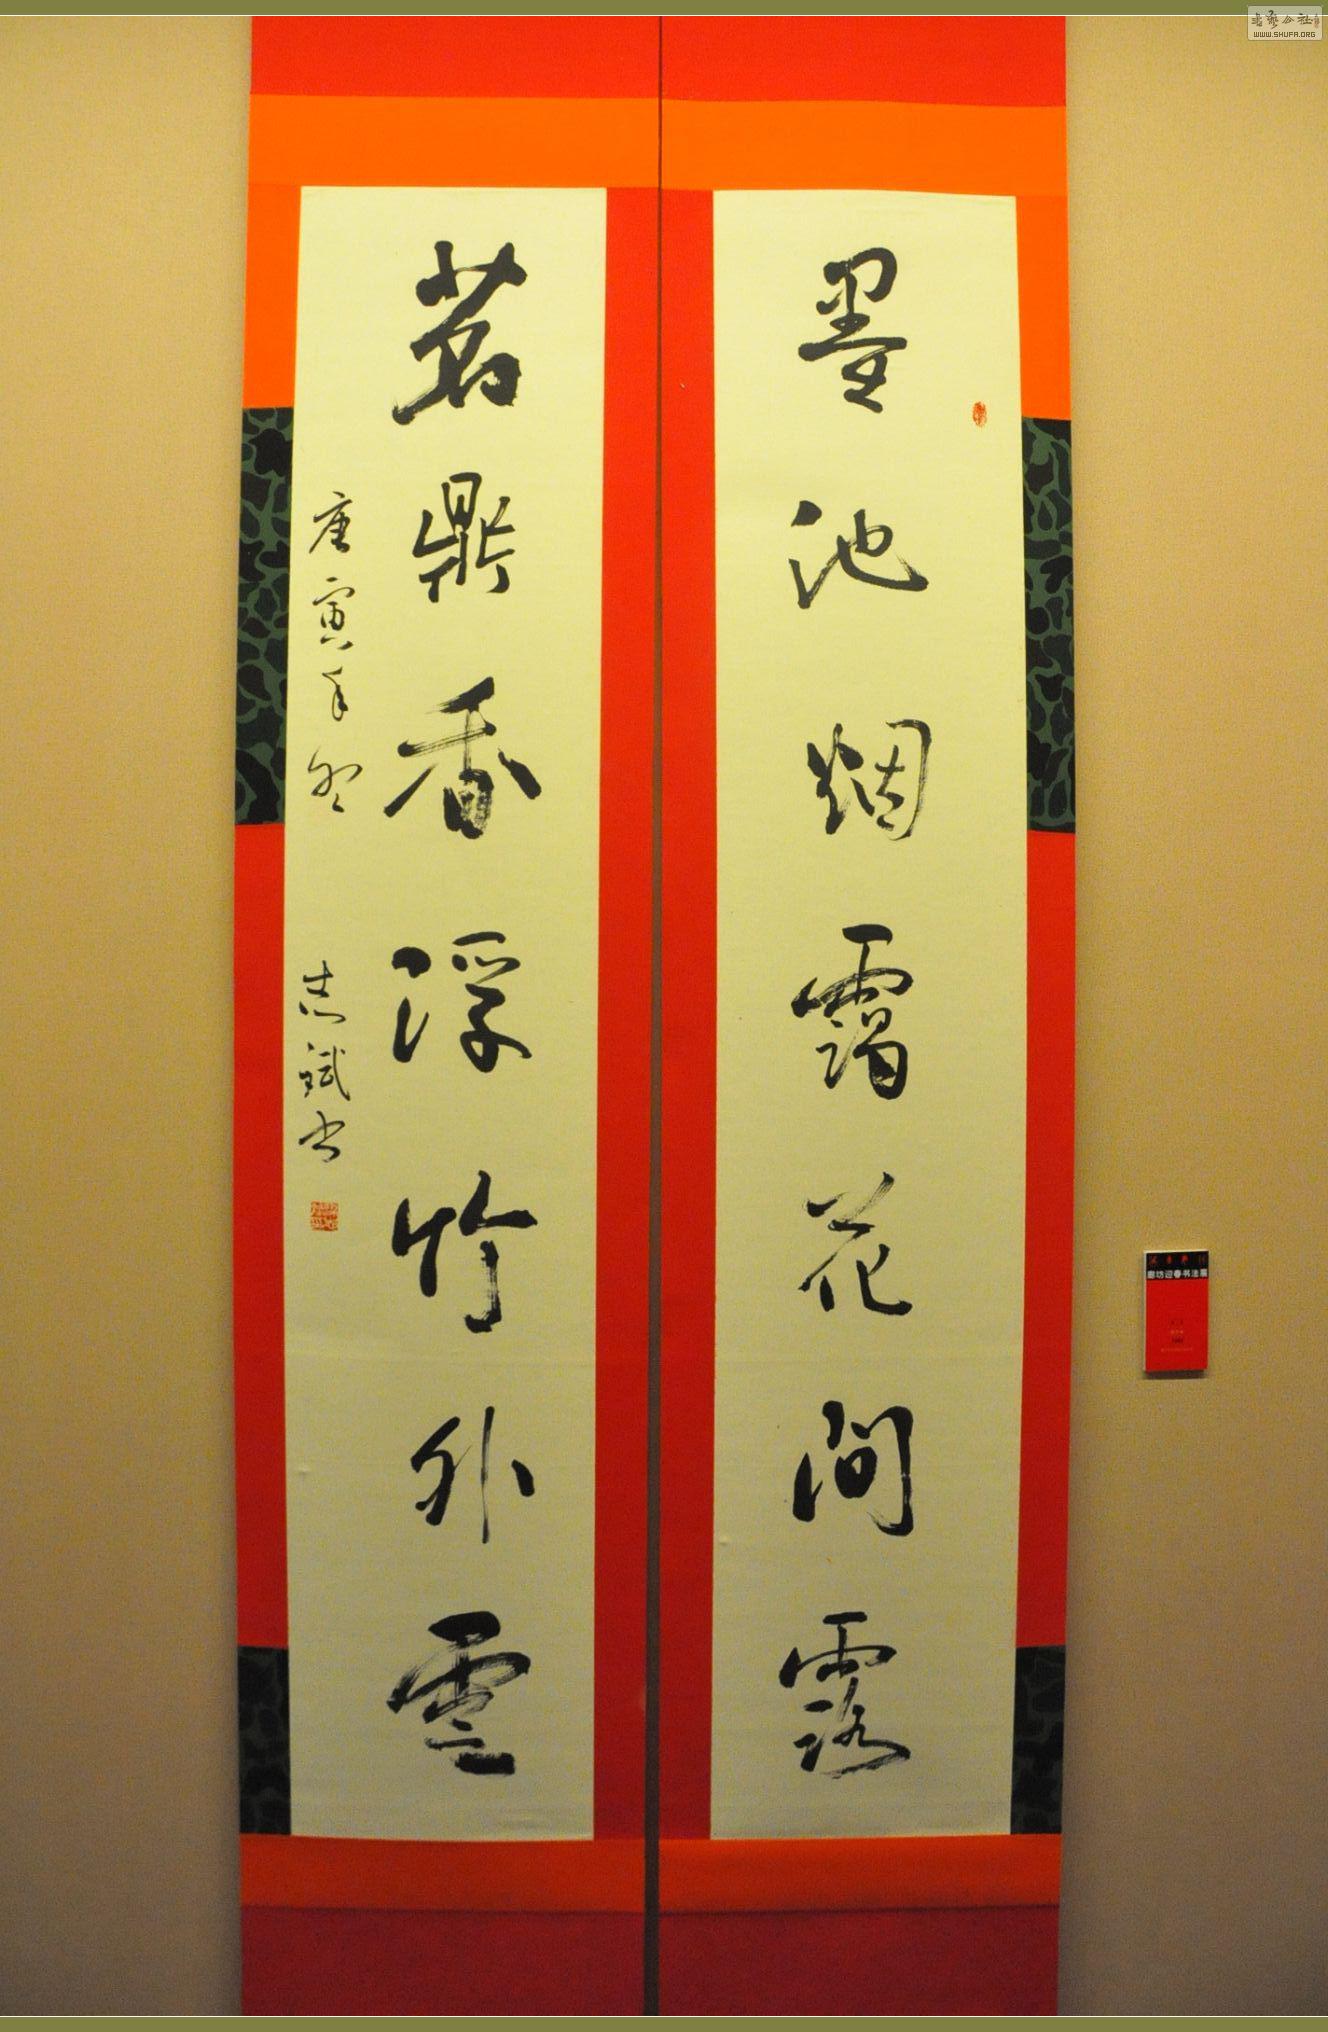 墨池烟霭花间露
茗鼎香浮竹外云
庚寅年冬
志斌书
廊坊迎春书法展
书艺公社
WWW.SHUFA.ORG